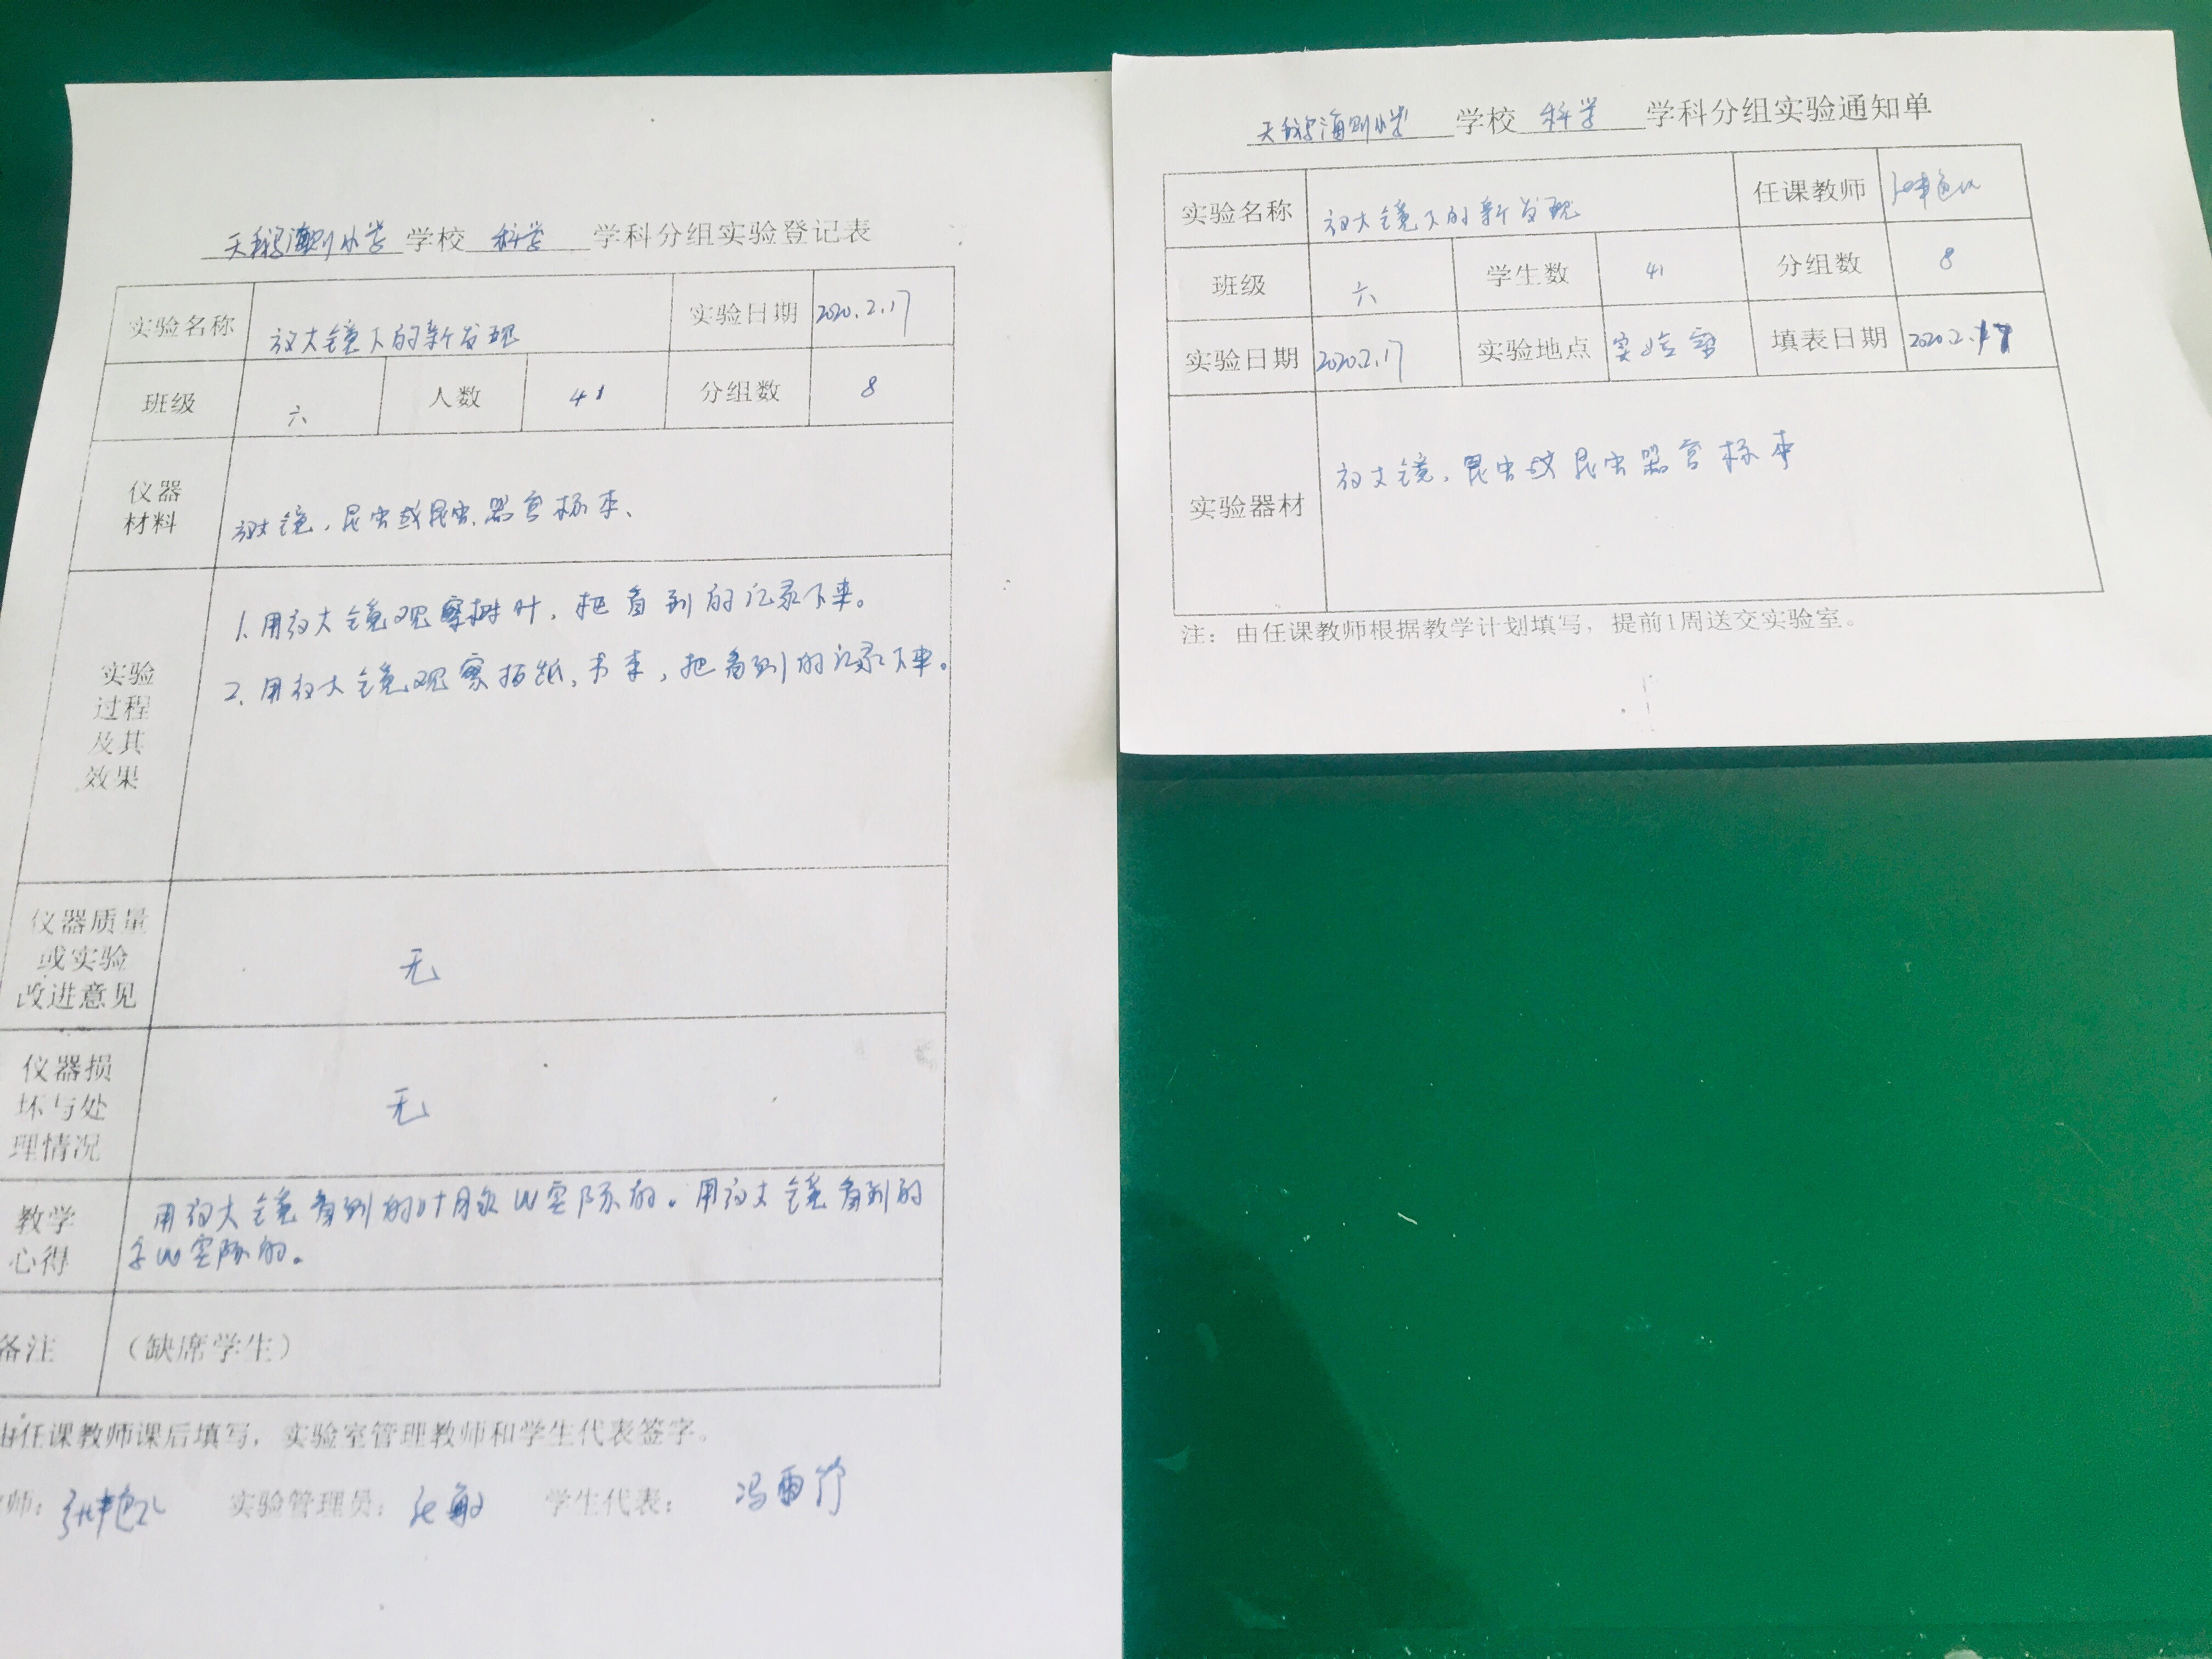 天鹅海则小学 学校 科学 学科分组实验登记表
实验名称 放大镜下的新发现 实验日期 2020.2.17
班级 六 人数 41 分组数 8
仪器
材料
放大镜,昆虫或昆虫器官标本、
实验
过程
及其
效果
1.用放大镜观察树叶,把看到的记录下来。
2.用放大镜观察报纸、书本,把看到的记录下来。
仪器质量
或实验
改进意见
无
仪器损
坏与处
理情况
无
教学
心得
用放大镜看到的叶脉 实际的。用放大镜看到的
字 实际的。
备注 (缺席学生)
由任课教师课后填写,实验室管理教师和学生代表签字。
师: 实验管理员:张敏 学生代表: 冯雨竹
天鹅海则小学 学校 科学 学科分组实验通知单
实验名称 放大镜下的新发现 任课教师
班级 六 学生数 41 分组数 8
实验日期 2020.2.17 实验地点 实验室 填表日期 2020.2.17
实验器材 放大镜,昆虫或昆虫器官标本
注:由任课教师根据教学计划填写,提前1周送交实验室。